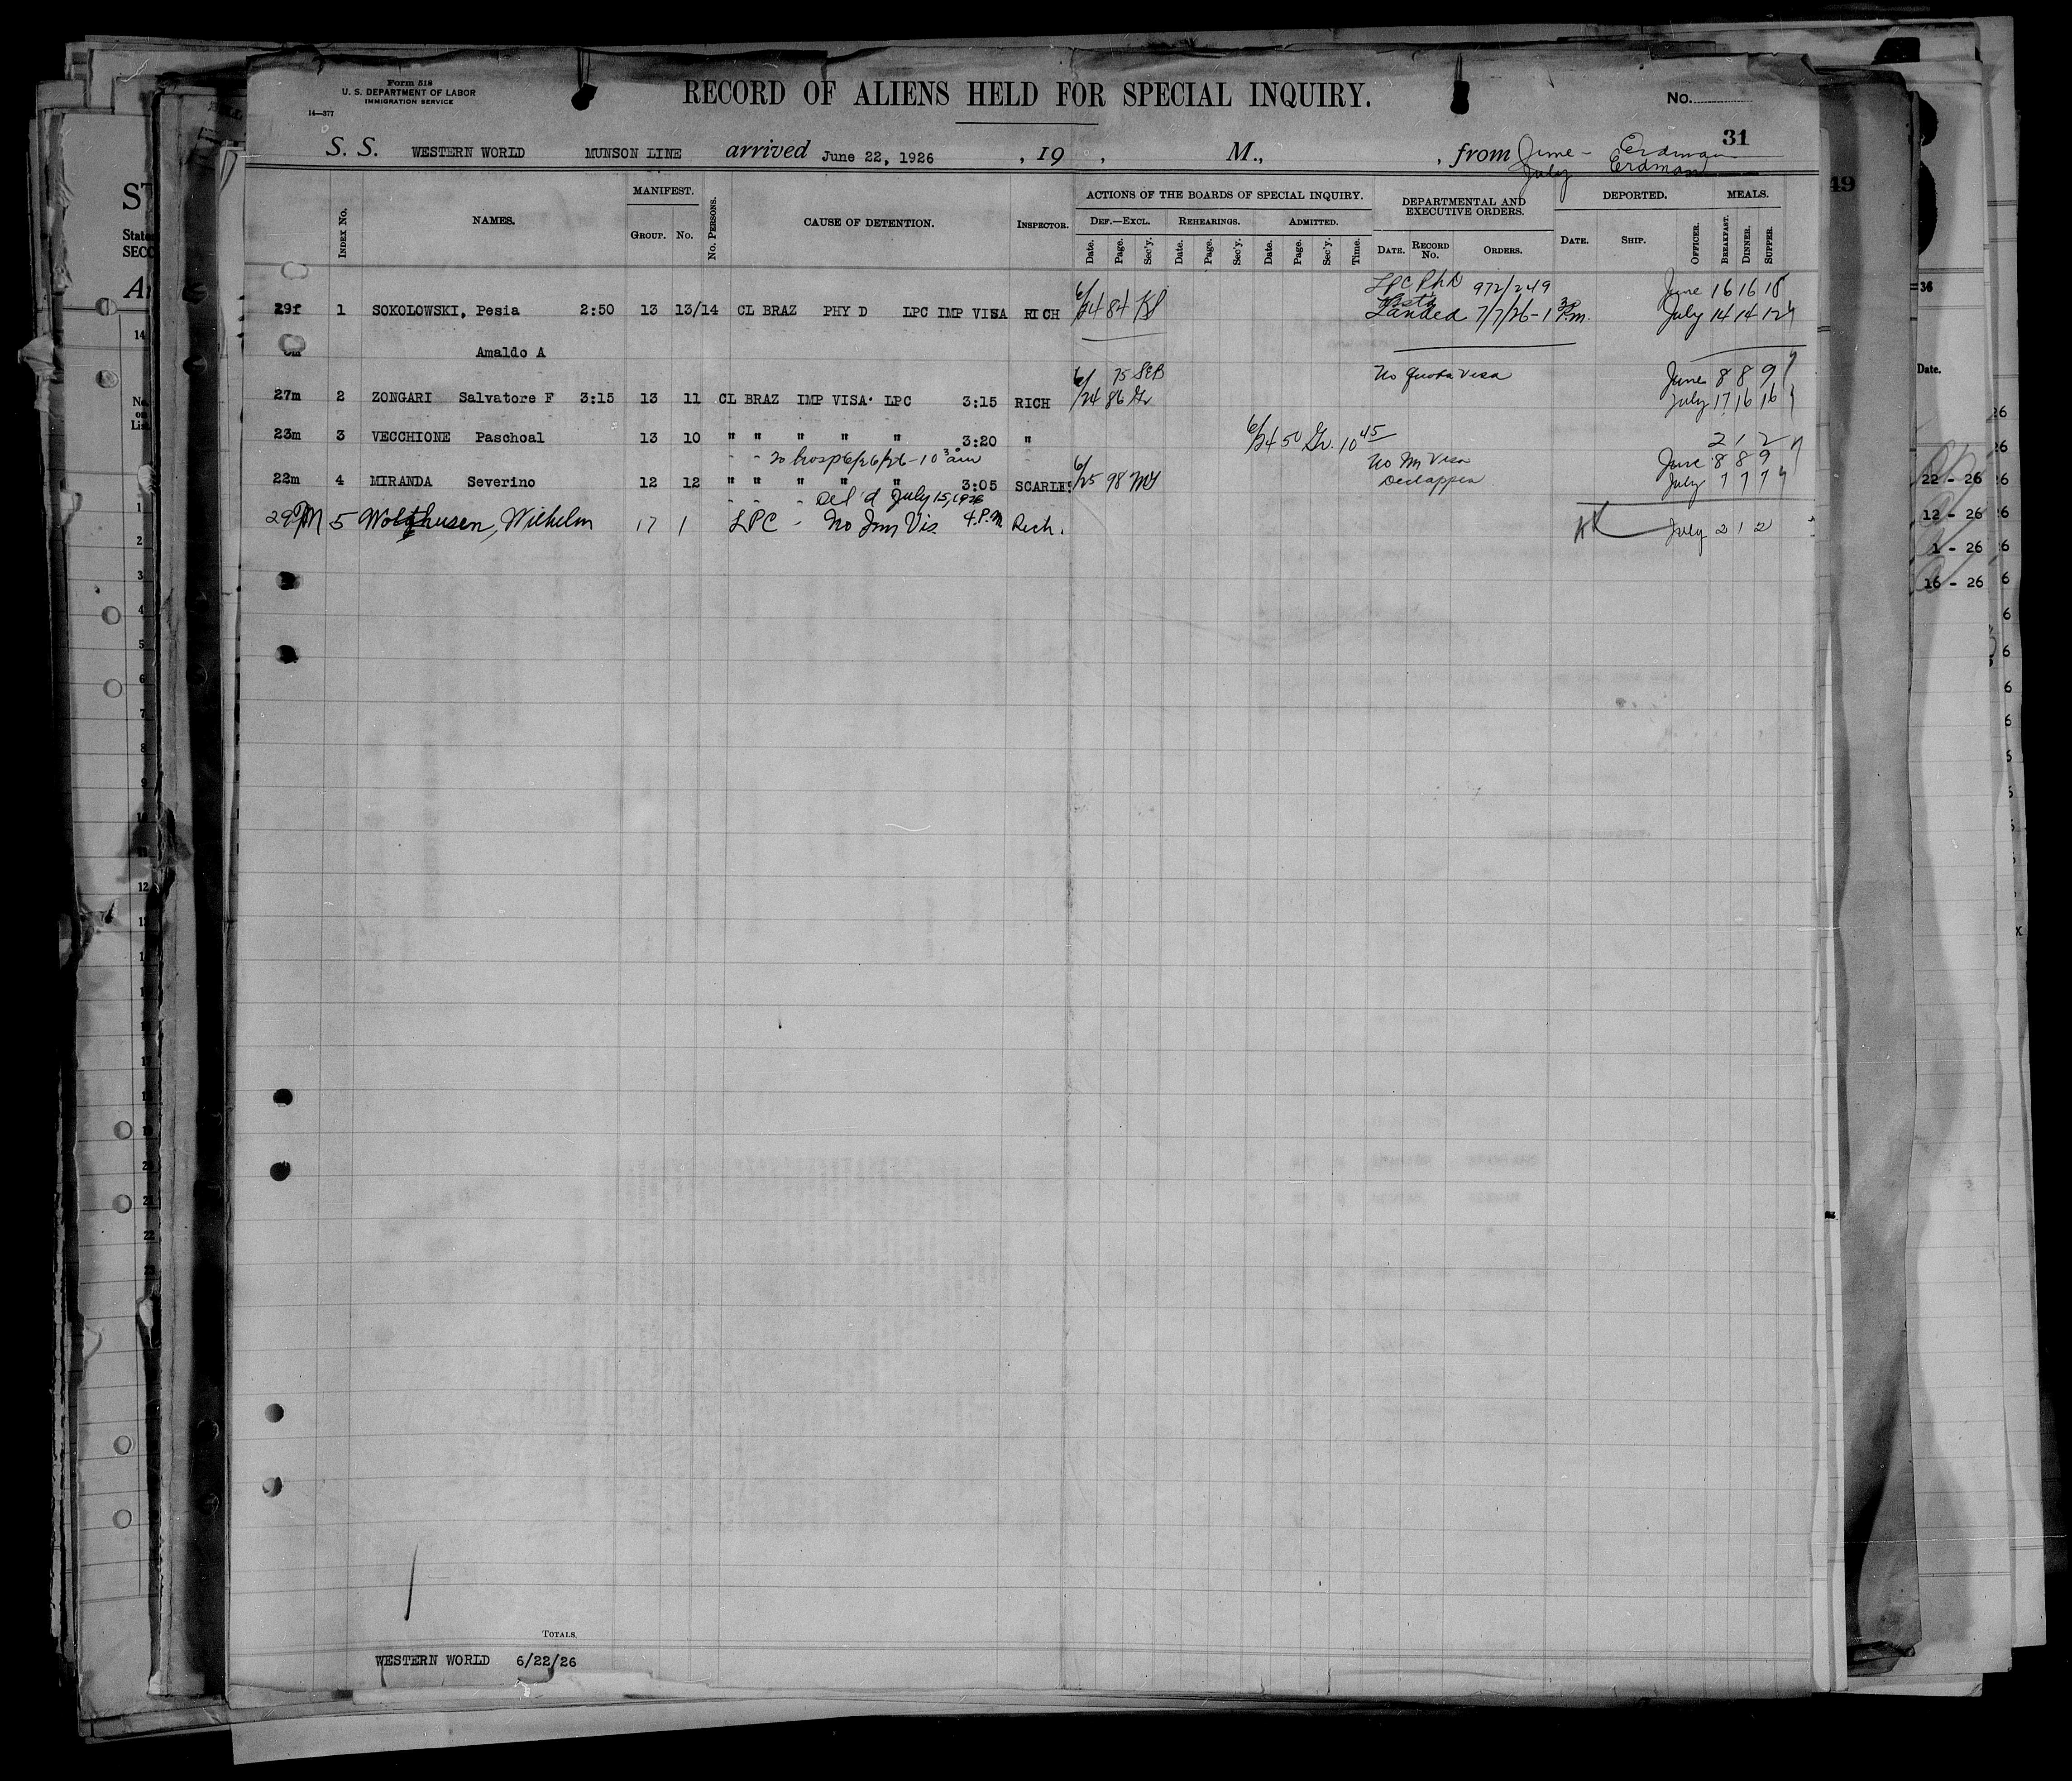 Form 518
U. S. DEPARTMENT OF LABOR
IMMIGRATION SERVICE
14—377
RECORD OF ALIENS HELD FOR SPECIAL INQUIRY.
No.
31
S. S. WESTERN WORLD MUNSON LINE arrived June 22, 1926 , 19 , M., , from June - Erdman
July Erdman
INDEX NO. NAMES. MANIFEST. GROUP. NO. NO. PERSONS. CAUSE OF DETENTION. INSPECTOR.
ACTIONS OF THE BOARDS OF SPECIAL INQUIRY.
DEF.—EXCL. REHEARINGS. ADMITTED.
Date. Page. Sec'y. Date. Page. Sec'y. Date. Page. Sec'y. Time.
DEPARTMENTAL AND EXECUTIVE ORDERS.
DATE. RECORD NO. ORDERS.
DEPORTED.
DATE. SHIP. OFFICER.
MEALS.
BREAKFAST. DINNER. SUPPER.
LPC PhD 972/249 June 16 16 18
29f 1 SOKOLOWSKI, Pesia 2:50 13 13/14 CL BRAZ PHY D LPC IMP VISA RICH 6/24 84 Landed 7/7/26 - 1 P.m. July 14 14 12
Amaldo A
75 No Quota Visa June 8 8 9
27m 2 ZONGARI Salvatore F 3:15 13 11 CL BRAZ IMP VISA LPC 3:15 RICH 6/24 86 Gr July 17 16 16
23m 3 VECCHIONE Paschoal 13 10 " " " " " 3:20 " 6/24 50 Gr. 10 45 2 1 2
To hosp 6/26/26 - 10 am No Im Visa June 8 8 9
22m 4 MIRANDA Severino 12 12 " " " " " 3:05 SCARLE 6/25 98 July 7 7 7
Del'd July 15, 1926
29 m 5 Wolthusen, Wilhelm 17 1 LPC - No Im Vis. 4 P.M Rich. July 2 1 2
TOTALS.
WESTERN WORLD 6/22/26
49
36
Date.
22 - 26
12 - 26
1 - 26
16 - 26